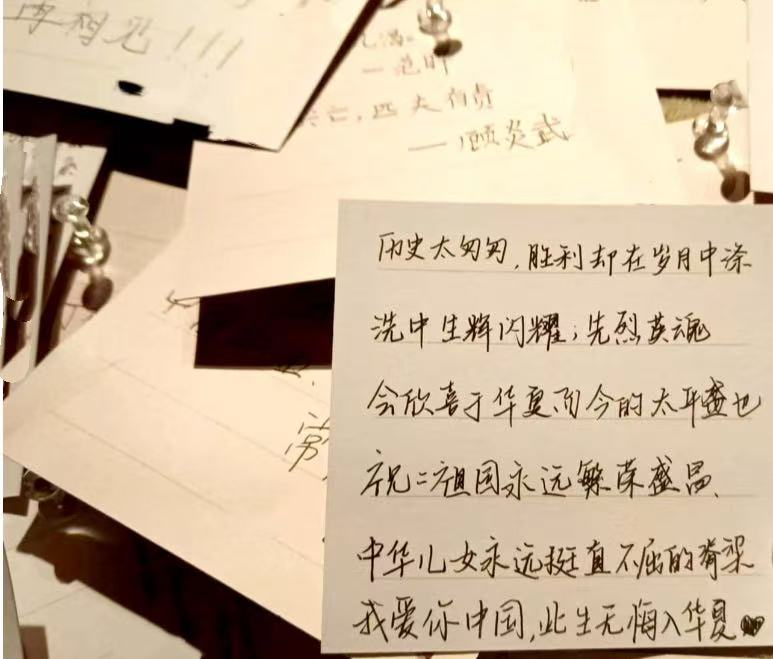 再相见!!!
一范晔
亡，匹夫有责
——顾炎武
历史太匆匆，胜利却在岁月中涤
洗中生辉闪耀；先烈英魂
会欣喜于华夏而今的太平盛也
祝二祖国永远繁荣盛昌、
中华儿女永远挺直不屈的脊梁
我爱你中国，此生无悔入华夏
常